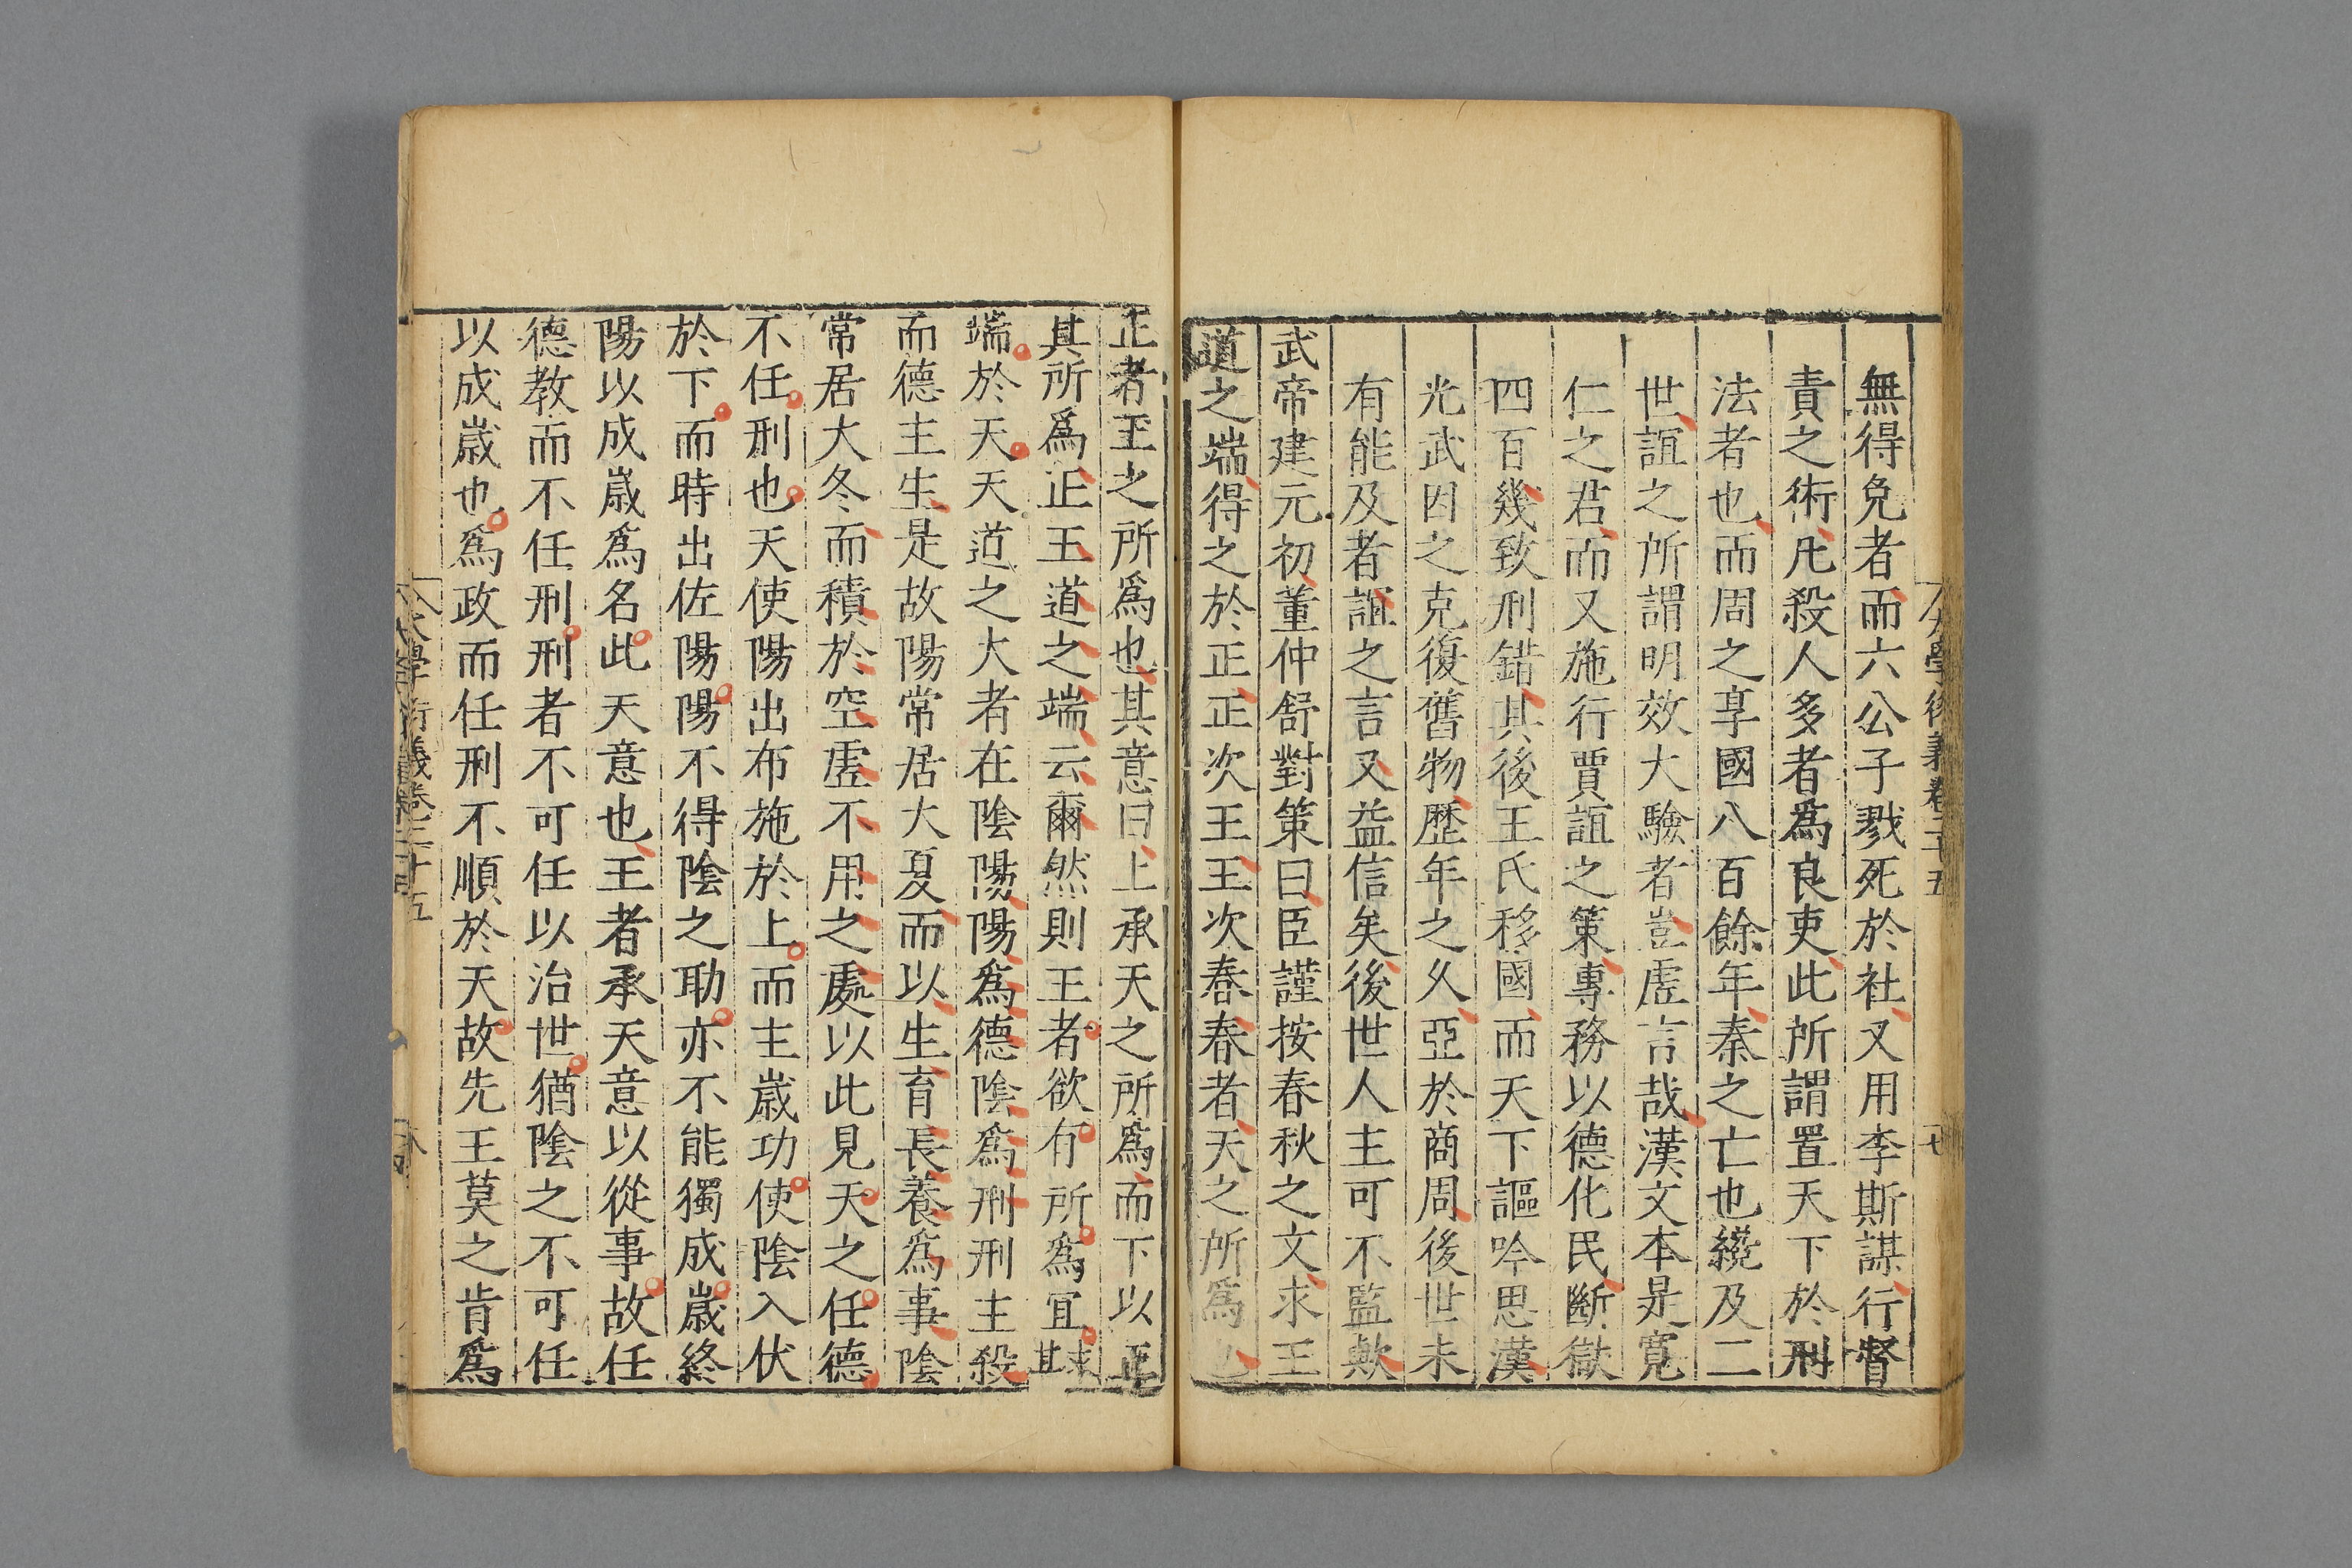 無得免者而六公子戮死於社又用李斯謀行督
責之術凡殺人多者爲良吏此所謂置天下於刑
法者也而周之享國八百餘年秦之亡也纔及二
世誼之所謂明效大驗者豈虛言哉漢文本是寬
仁之君而又施行賈誼之策專務以德化民斷獄
四百幾致刑錯其後王氏移國而天下謳吟思漢
光武因之克復舊物歷年之久亞於商周後世未
有能及者誼之言又益信矣後世人主可不監歟
武帝建元初董仲舒對策曰臣謹按春秋之文求王
道之端得之於正正次王王次春春者天之所爲也
正者王之所爲也其意曰上承天之所爲而下以正
其所爲正王道之端云爾然則王者欲有所爲宜求其
端於天天道之大者在陰陽陽爲德陰爲刑刑主殺
而德主生是故陽常居大夏而以生育長養爲事陰
常居大冬而積於空虛不用之處以此見天之任德
不任刑也天使陽出布施於上而主歲功使陰入伏
於下而時出佐陽陽不得陰之助亦不能獨成歲終
陽以成歲爲名此天意也王者承天意以從事故任
德教而不任刑刑者不可任以治世猶陰之不可任
以成歲也爲政而任刑不順於天故先王莫之肯爲
大學衍義卷二十五